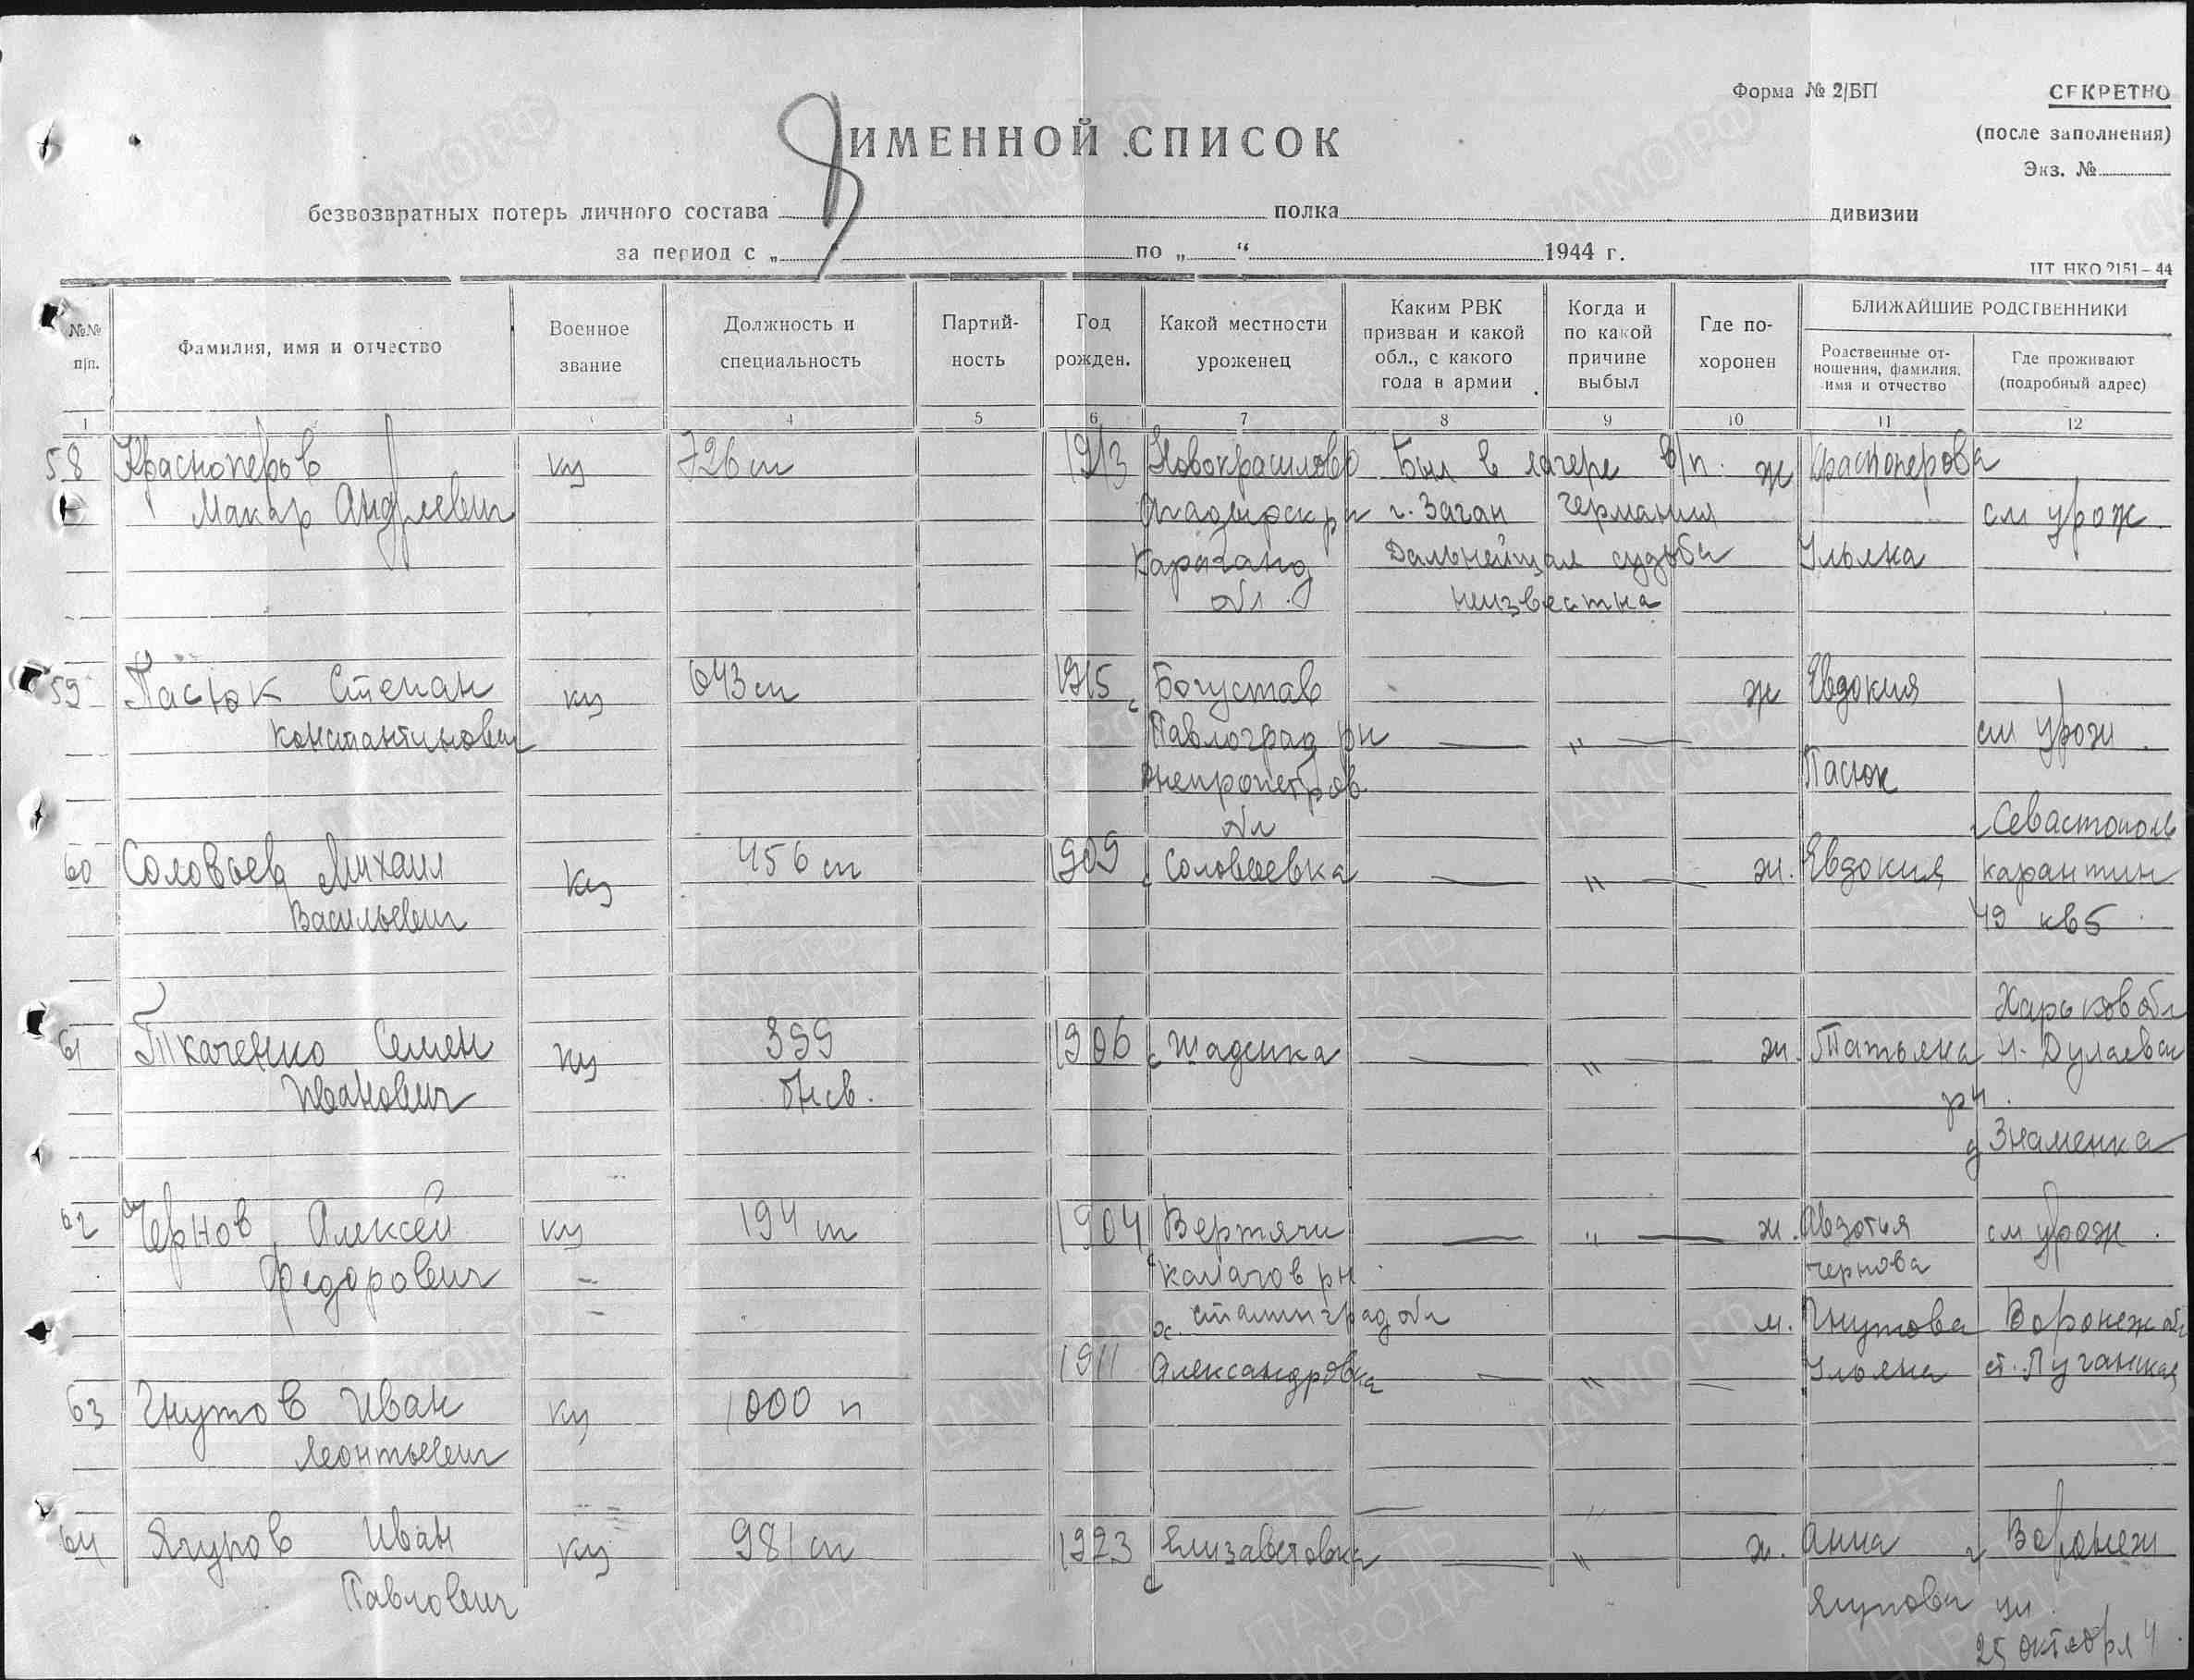 Форма № 2/БП
СЕКРЕТНО
(после заполнения)
Экз. №
ИМЕННОЙ СПИСОК
безвозвратных потерь личного состава полка дивизии
за период с „ “ по „ “ 1944 г.
ЦТ НКО 2151-44
№№ п/п.
Фамилия, имя и отчество
Военное звание
Должность и специальность
Партий-
ность
Год рожден.
Какой местности уроженец
Каким РВК призван и какой обл., с какого года в армии
Когда и по какой причине выбыл
Где по-
хоронен
БЛИЖАЙШИЕ РОДСТВЕННИКИ
Родственные от-
ношения, фамилия, имя и отчество
Где проживают (подробный адрес)
1 4 5 6 7 8 9 10 11 12
58 Красноперов кц 726 сп 1913 Новокрасилово Был в лагере в/п. ж Красноперова
Макар Андреевич г. Заган Германия см урож
Караганд Дальнейшая судьба Ульяна
обл. неизвестна
59 Пасюк Степан кц 643 сп 1915 с Богустав ж Евдокия
Константинович Павлоград рн — " — см урож.
Днепропетров. Пасюк
обл
г Севастополь
60 Соловьев Михаил кц 456 сп 1909 с Соловьевка — " — ж. Евдокия карантин
Васильевич 49 кв 5
Харьков обл
61 Ткаченко Семен кц 399 1906 с — " — ж. Татьяна
Иванович рн.
д Знаменка
62 Чернов Алексей кц 194 сп 1904 Вертячи — " — ж. Авдотья см урож.
Федорович Калачов рн Чернова
Сталинград обл м. Гнутова Воронеж обл
1911 Александровка — " — Ульяна ст. Луганская
63 Гнутов Иван кц 1000 п
Леонтьевич
64 Ягупов Иван кц 981 сп 1923 с Елизаветовка — " — ж. Анна г Воронеж
Павлович Ягупова ул.
25 октября 4